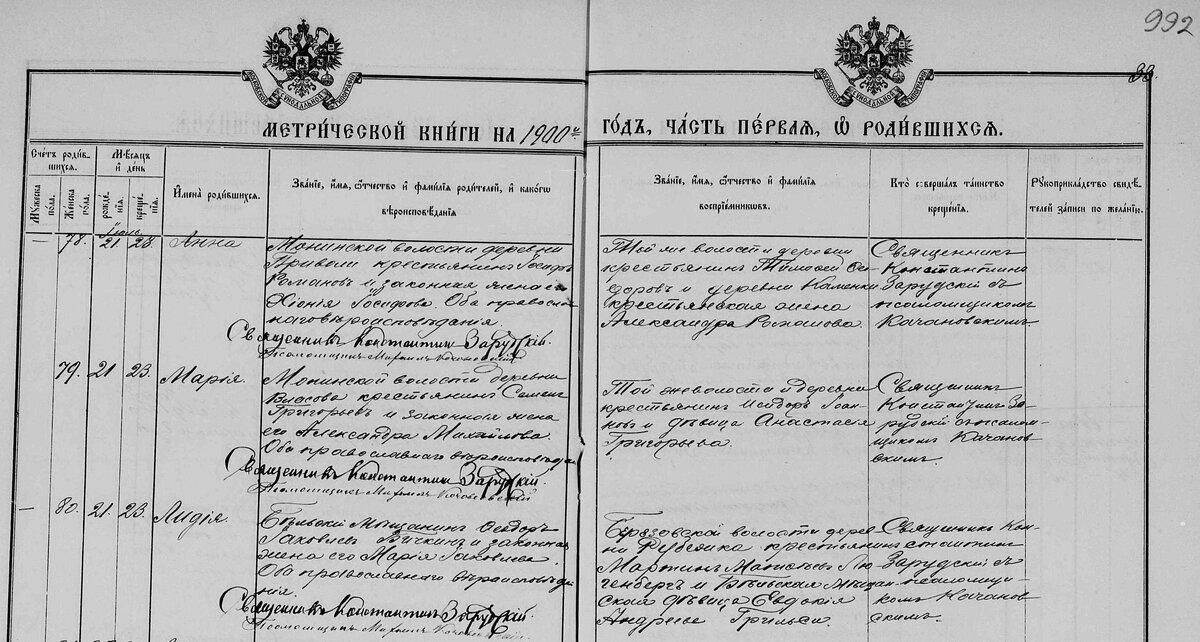 992
33.
МОСКОВСКОЙ СѴНОДАЛЬНОЙ ТИПОГРАФІИ
МОСКОВСКОЙ СѴНОДАЛЬНОЙ ТИПОГРАФІИ
МЕТРИ́ЧЕСКОЙ КНИ́ГИ НА 1900й ГО́ДЪ, ЧА́СТЬ ПЕ́РВАЯ, Ѡ҆ РОДИ́ВШИХСЯ.
Сче́тъ роди́в-
шихся.
Мꙋ́жеска по́ла.
Же́нска по́ла.
Мѣ́сяцъ
и҆ де́нь
рожде́нїя.
креще́нїя.
И҆мена̀ роди́вшихся.
Зва́нїе, и҆́мя, ѻ҆́тчество и҆ фами́лїя роди́телей, и҆ како́гѡ
вѣроисповѣ́данїя
Зва́нїе, и҆́мя, ѻ҆́тчество и҆ фами́лїя
воспрїе́мниковъ.
Кто̀ соверша́лъ та́инство
креще́нїя.
Рꙋкоприкла́дство свидѣ́-
телей за́писи по жела́нїю.
Іюль
— 78. 21 23. Анна
Монинской волости деревни
крестьянинъ Іосифъ
Романовъ и законная жена его
Хіонія Іосифова. Оба православ-
наго вѣроисповѣданія.
Священникъ Константинъ Заруцкій.
Псаломщикъ Михаилъ Качановскій
Той же волости и деревни
крестьянинъ Тимофей Си-
доровъ и деревни Каменки
крестьянская жена
Александра
Священникъ
Константинъ
Зарудскій съ
псаломщикомъ
Качановскимъ.
79. 21 23. Марія.
Монинской волости деревни
Власова крестьянинъ Семенъ
Григорьевъ и законная жена
его Александра Михайлова.
Оба православнаго вѣроисповѣда
Священникъ Константинъ Заруцкій.
Псаломщикъ Михаилъ Качановскій
Той же волости и деревни
крестьянинъ Исидоръ Іоан-
новъ и дѣвица Анастасія
Григорьева.
Священникъ
Константинъ За-
рудскій съ псалом-
щикомъ Качанов-
скимъ.
— 80. 21. 23. Лидія.
Бѣльскій Мѣщанинъ Ѳеодоръ
Яковлевъ и законная
жена его Марія Яковлева.
Оба православнаго вѣроисповѣда-
нія.
Священникъ Константинъ Заруцкій.
Псаломщикъ Михаилъ Качановскій.
Березовской волости дерев
ни Рубежка крестьянинъ
Мартинъ
и Бѣльская мѣщан
ская дѣвица Евдокія
Андреева
Священникъ Кон-
стантинъ
Зарудскій съ
псаломщи-
комъ Качанов-
скимъ.